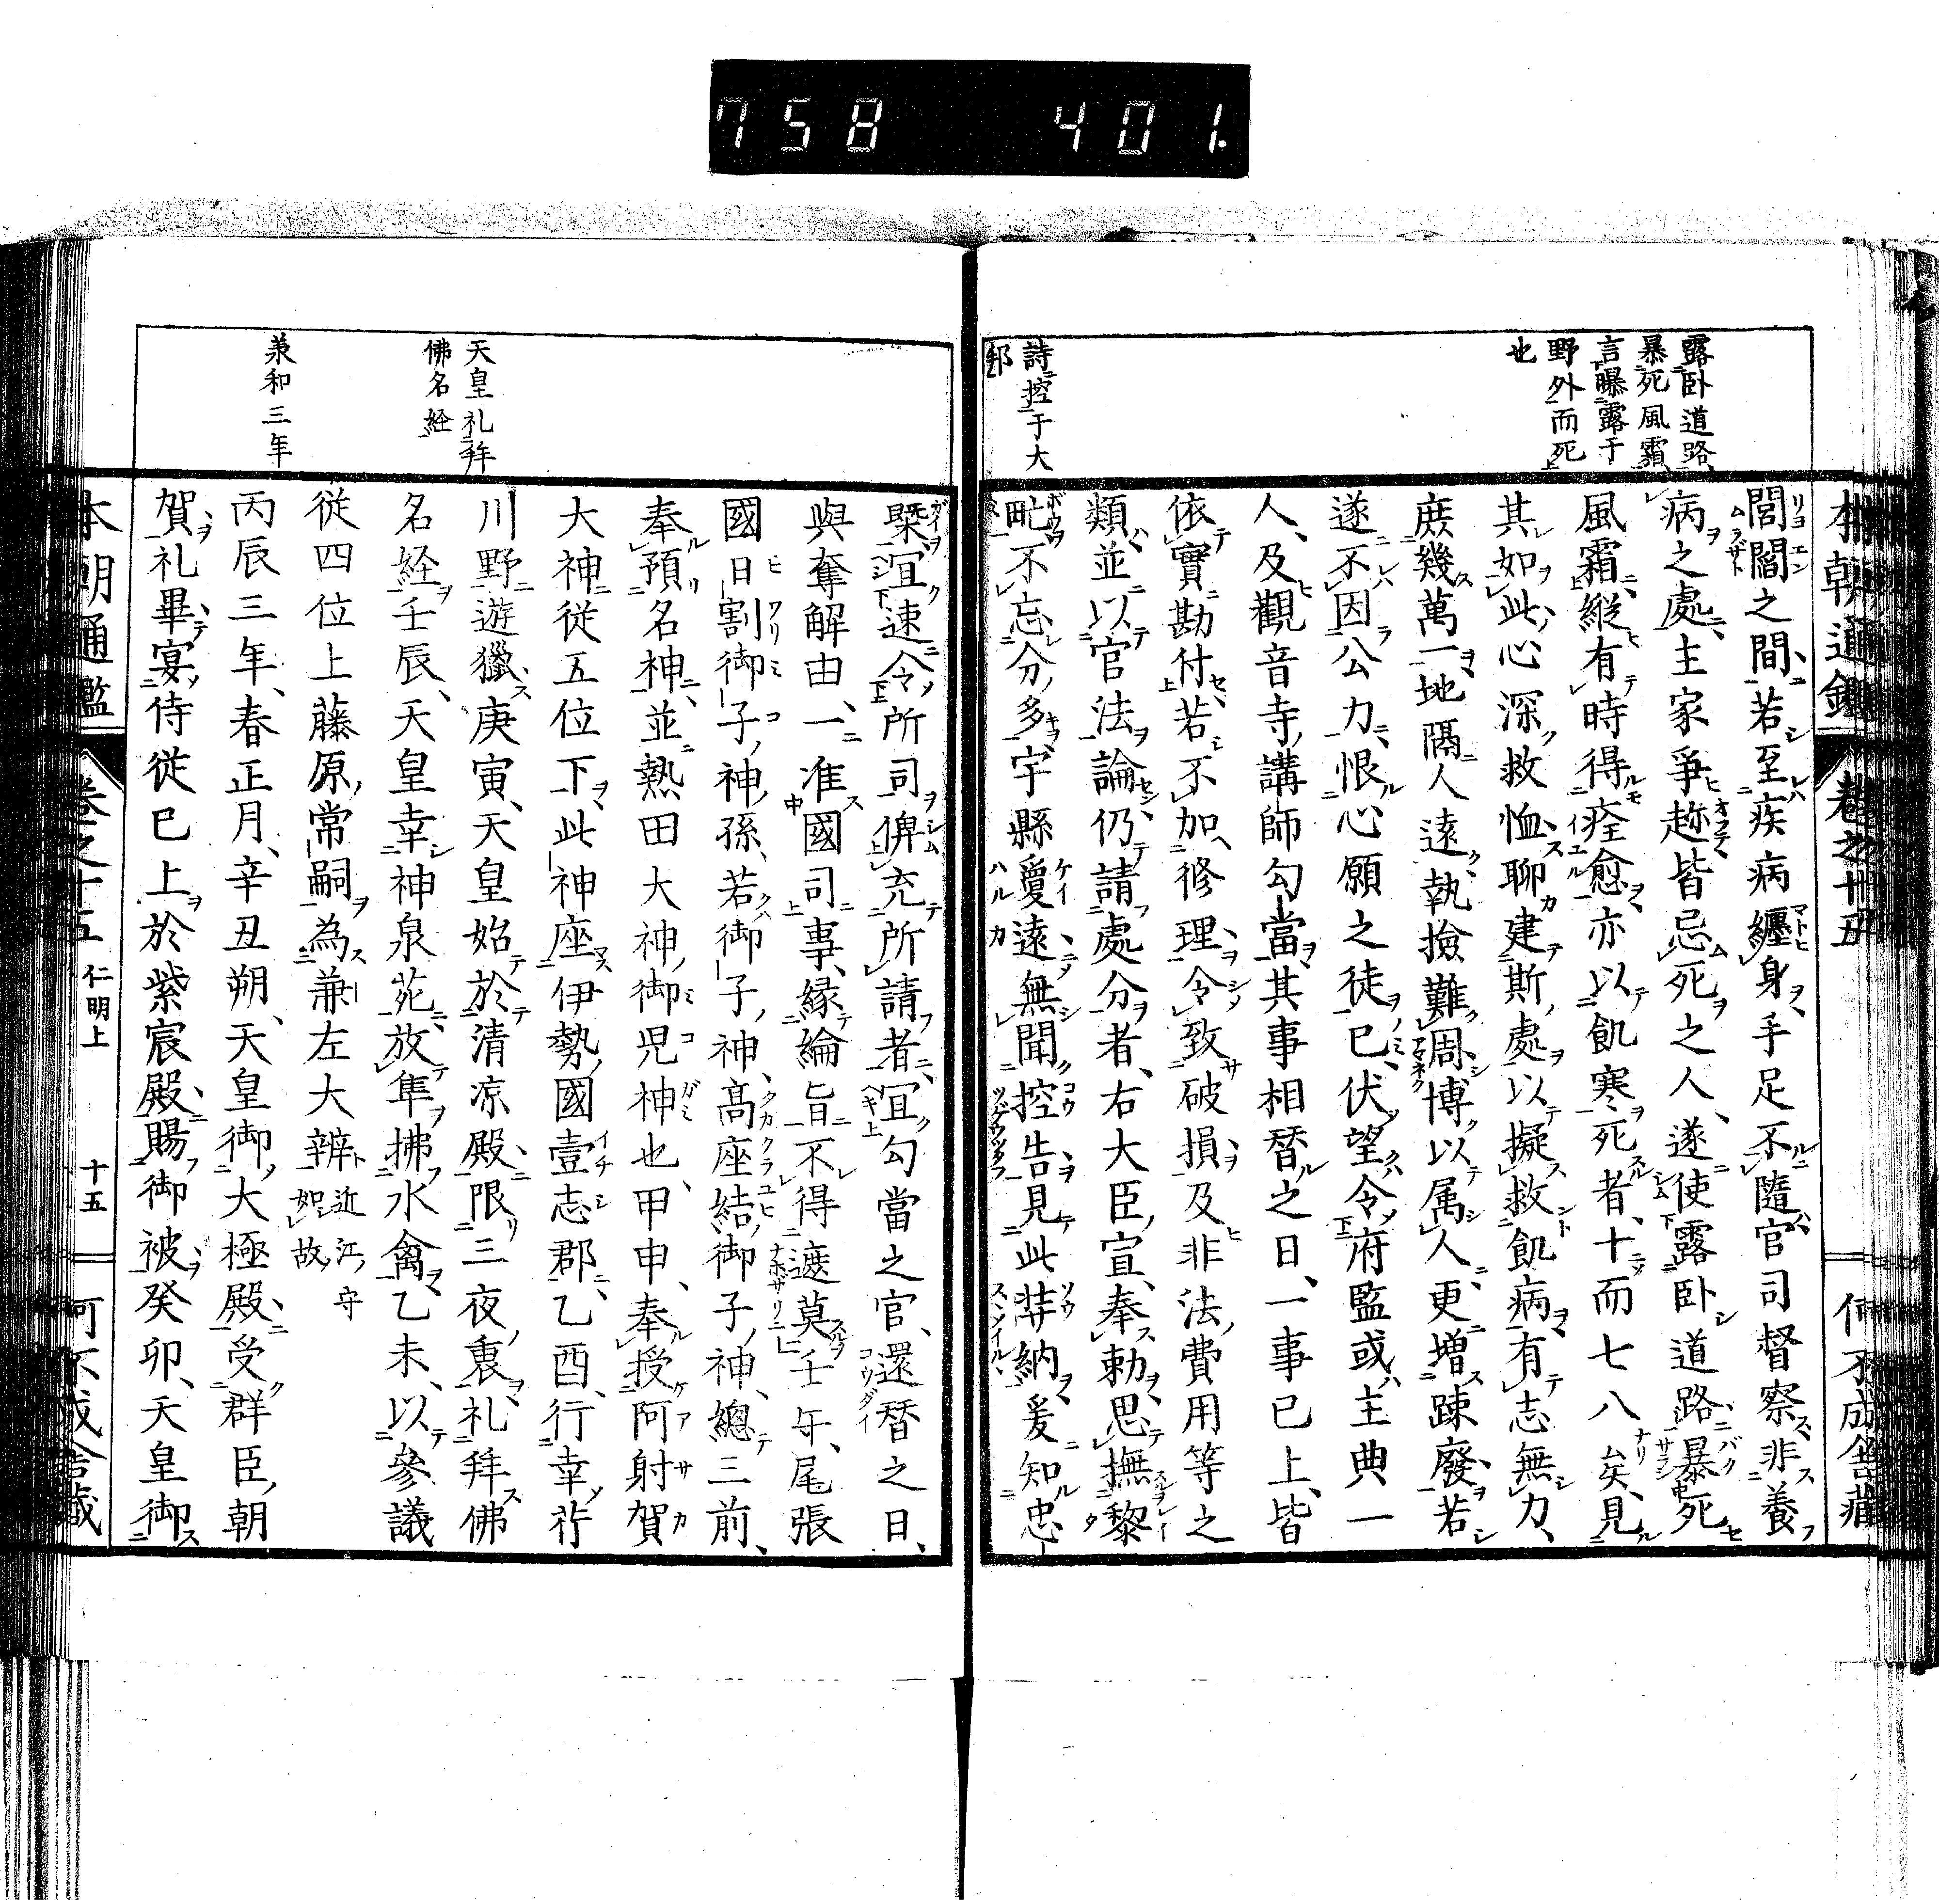 758 401.
露卧道路
暴死風霜
言曝露于
野外而死
也
詩控于大
邦
本朝通鑑 卷之十五 何不成舎蔵
閭閻之間若至疾病纏身手足不隨官司督察非養
病之處主家爭趂皆忌死之人遂使露卧道路暴死
風霜縱有時得痊愈亦以飢寒死者十而七八矣見
其如此心深救恤聊建斯處以擬救飢病有志無力
庶幾萬一地隔人遠執撿難周博以属人更增踈廢若
遂不因公力恨心願之徒已伏望令府監或主典一
人及觀音寺講師勾當其事相替之日一事已上皆
依實勘付若不加修理令致破損及非法費用等之
類並以官法論仍請處分者右大臣宣奉勅思撫黎
甿不忘分多宇縣敻遠無聞控告見此弉納爰知忠
槩宜速令所司俾充所請者宜勾當之官還替之日
與奪解由一准國司事縁綸旨不得遮莫壬午尾張
國日割御子神孫若御子神髙座結御子神總三前
奉預名神並熱田大神御児神也甲申奉授阿射賀
大神従五位下此神座伊勢國壹志郡乙酉行幸芹
川野遊獵庚寅天皇始於清凉殿限三夜裏礼拜佛
名経壬辰天皇幸神泉苑放隼拂水禽乙未以參議
従四位上藤原常嗣為兼左大辨近江守如故
丙辰三年春正月辛丑朔天皇御大極殿受群臣朝
賀礼畢宴侍従已上於紫宸殿賜御被癸卯天皇御
天皇礼拜
佛名経
兼和三年
本朝通鑑 卷之十五 仁明上 十五 何不成舎蔵